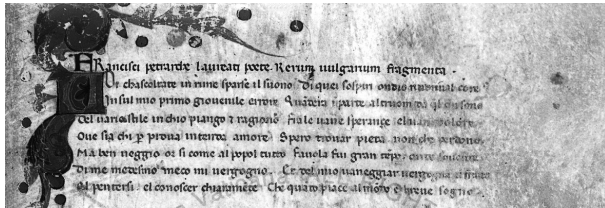 FRancisci petrarche laureati poete. Rerum vulgarium fragmenta.
Voi chascoltate in rime sparse il suono Di quei sospiri ondio nudriva il core
In sul mio primo giovenile errore Quātera ī parte altruom da ql chi sono
Del vario stile in chio piango & ragiono Fra le vane sperançe el van dolore
Ove sia chi p prova intenda amore Spero trovar pieta non che perdono.
Ma ben veggio or si come al popol tutto Favola fui gran tēpo onde sovente
Di me medesmo meco mi vergogno. Et del mio vaneggiar vergogna el frutto
El pentersi el conoscer chiaramēte Che quāto piace al mōdo e breve sogno.